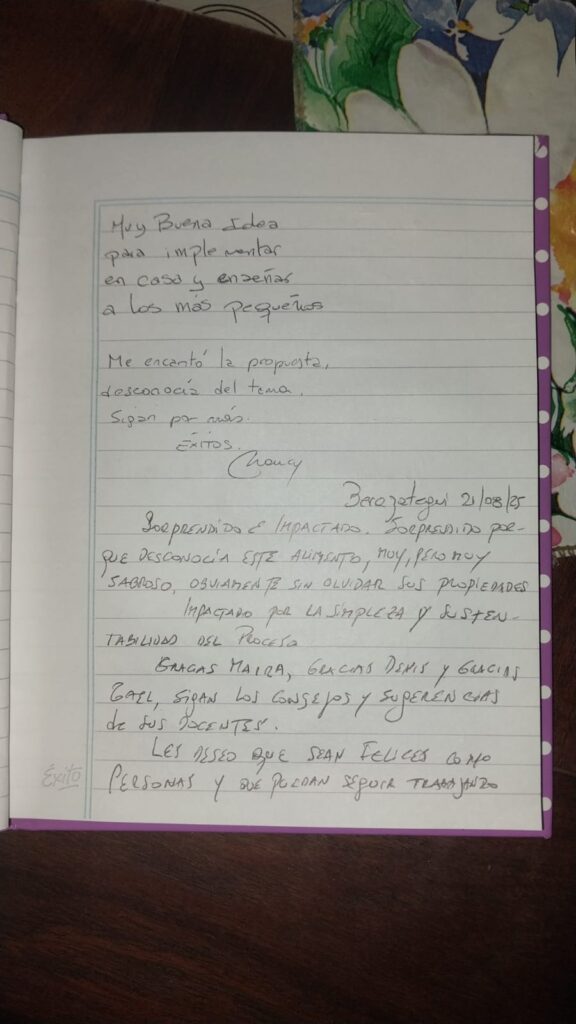 Muy Buena Idea
para implementar
en casa y enseñar
a los más pequeños
Me encantó la propuesta,
desconocía del tema.
Sigan por más.
ÉXITOS.
Berazategui 21/08/25
SORPRENDIDO E IMPACTADO. SORPRENDIDO POR-
QUE DESCONOCÍA ESTE ALIMENTO, MUY, PERO MUY
SABROSO, OBVIAMENTE SIN OLVIDAR SUS PROPIEDADES
IMPACTADO POR LA SIMPLEZA Y SUSTEN-
TABILIDAD DEL PROCESO
GRACIAS MAIRA, GRACIAS DENIS Y GRACIAS
SIGAN LOS CONSEJOS Y SUGERENCIAS
de SUS DOCENTES.
LES DESEO QUE SEAN FELICES COMO
PERSONAS Y QUE PUEDAN SEGUIR TRABAJANDO
Éxito